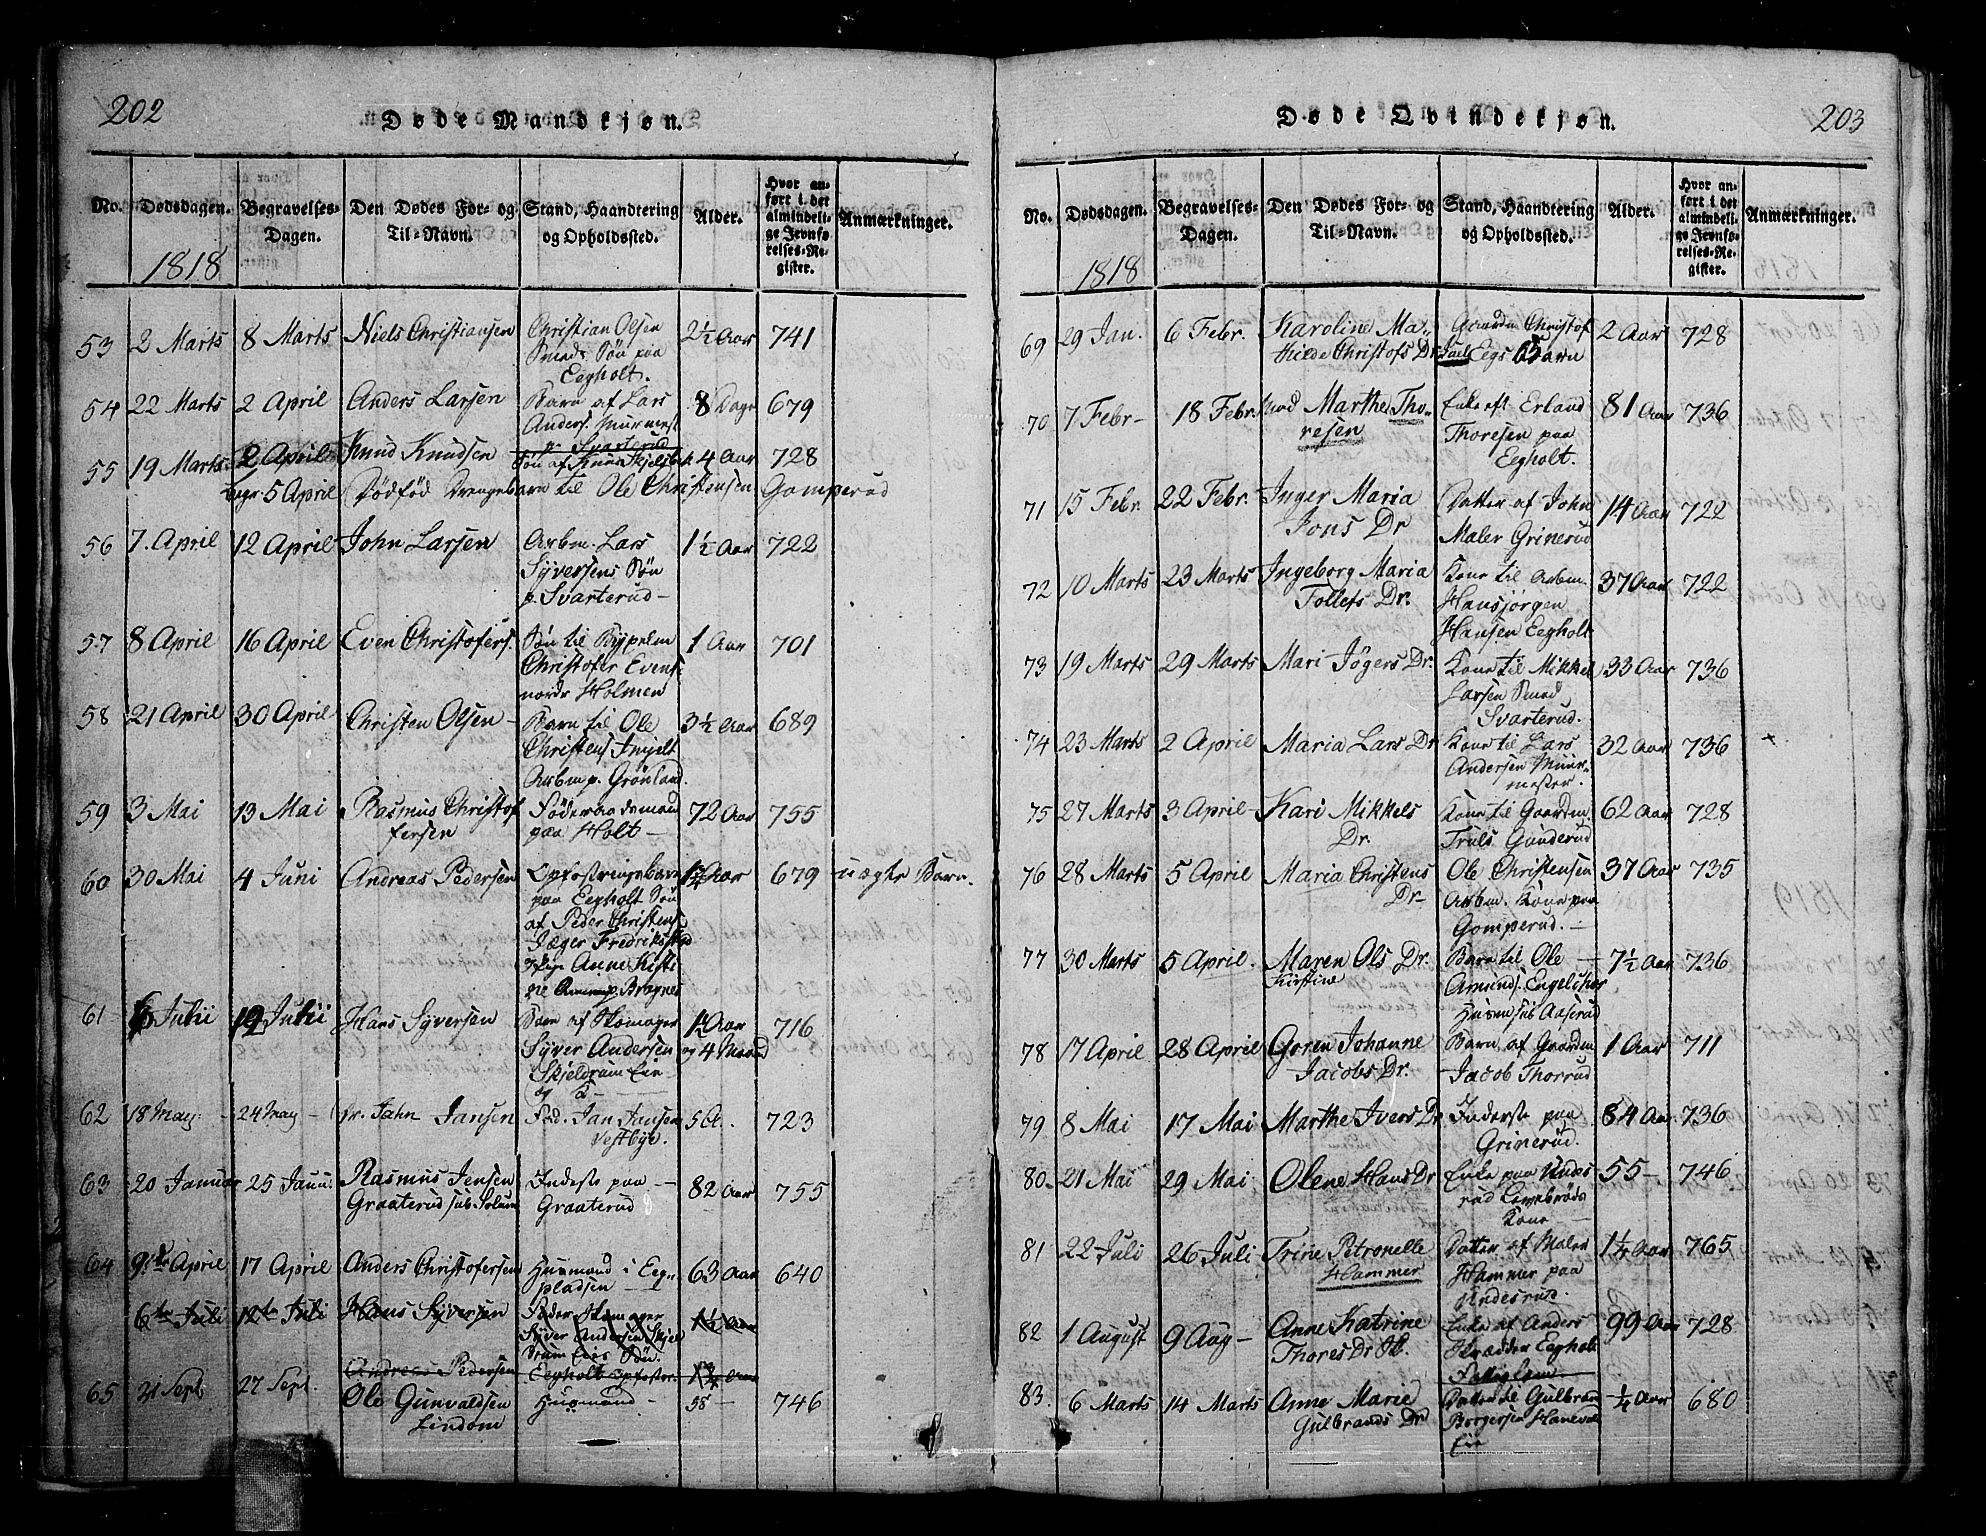 202
Døde Mandkjøn.
No. Dødsdagen. Begravelses-Dagen. Den Dødes For- og Til-Navn. Stand, Haandtering og Opholdssted. Alder. Hvor anført i det almindelige Jevnførelses-Register. Anmærkninger.
1818
53 2 Marts 8 Marts Niels Christiansen Christian Olsen 2½ Aar 741
Smeds Søn paa
Eegholt.
54 22 Marts 2 April Anders Larsen Barn af Lars 8 Dage 679
Anders. Murmest
p. Svarterud
55 19 Marts 2 April Knud Knudsen Søn af Knud 4 Aar 728
5 April Dødfød Drengebarn til Ole Christensen Gomperud
56 7. April 12 April John Larsen Arbm. Lars 1½ Aar 722
Syversens Søn
p. Svarterud
57 8 April 16 April Even Christofers. Søn til 1 Aar 701
Christofer Evens.
nordr Holmen
58 21 April 30 April Christen Olsen Barn til Ole 3½ Aar 689
Christens
Arbm p. Grönland.
59 3 Mai 13 Mai Rasmus Christof Föderaadsmand 72 Aar 755
fersen paa Holt
60 30 Mai 4 Juni Andreas Pedersen Opfostringsbarn Aar 679 uægte Barn.
paa Eegholt Søn
af Peder Christens.
Jæger Fredriksstad
Anne Kisti
ne p Bragnes
61 6 Julii 12 Julii Hans Syversen Barn af Skomager 1 Aar 716
Syver Andersen og 4 Maaned
Skjeldrum Eie
62 18 May 24 May Jahn Jansen Jan Jansen 723
Vestbye.
63 20 Januar 25 Janu. Rasmus Jensen Inderste paa 82 Aar 755
Graaterud sub Solum Graaterud
64 9de April 17 April Anders Christofersen Husmand i Eeg- 63 Aar 640
pladsen
6te Juli 12te Juli Hans Syversen Skomager 1½ Aar
Syver Andersen Skjel
drum Eies Søn.
Andreas Pedersen Eegholt Opfostr. Aar
65 21 Sept 27 Sept. Ole Gunvaldsen Husmand 58 746
Lindom
203
Døde Qvindekjøn.
No. Dødsdagen. Begravelses-Dagen. Den Dødes For- og Til-Navn. Stand, Haandtering og Opholdssted. Alder. Hvor anført i det almindelige Jevnførelses-Register. Anmærkninger.
1818
69 29 Jan. 6 Febr. Karoline Ma- Gaardm Christof 2 Aar 728
thilde Christofs Dr. Eegs Barn
70 7 Febr 18 Febr Marthe Tho- Enke eft Erland 81 Aar 736
resen Thoresen paa
Eegholt.
71 15 Febr 22 Febr. Inger Maria Datter af John 14 Aar 722
Jons Dr Maler Grinerud
72 10 Marts 23 Marts Ingeborg Maria Kone til Arbm. 37 Aar 722
Tollefs Dr. Hansjörgen
Hansen Eegholt
73 19 Marts 29 Marts Mari Jögers Dr. Kone til Mikkel 33 Aar 736
Larsen Smed
Svarterud.
74 23 Marts 2 April Maria Lars Dr Kone til Lars 32 Aar 736 +
Andersen Muur-
mester.
75 27 Marts 3 April Kari Mikkels Kone til Gaardm 62 Aar 728
Dr. Truls Gunderud
76 28 Marts 5 April Maria Christens Ole Christensen 37 Aar 735
Dr Arbm. Kone paa
Gomperud.
77 30 Marts 5 April. Maren Ols Dr. Barn til Ole 7½ Aar 736
Kirstine Amunds. Engelshus
sub Aaserud
78 17 April 28 April Goren Johanne Barn af Gaardm 1 Aar 711
Jacobs Dr. Jacob Thorrud
79 8 Mai 17 Mai Marthe Ivers Dr Inderste paa 84 Aar 736
Grinerud.
80 21 Mai 29 Mai Olene Hans Dr Enke paa Undes 55 746
rud
Kone
81 22 Juli 26 Juli Trine Petronelle Datter af Maler 1¼ Aar 765
Hammer Hammer paa
Undesrud.
82 1 August 9 Aug Anne Katrine Enke af Anders 99 Aar 728
Thores Dr Skrædder Eegholt
83. 6 Marts 14 Marts Anne Marie Datter til Gulbran ¼ Aar 680
Gulbrands Dr Borgersen Haneval
Eie